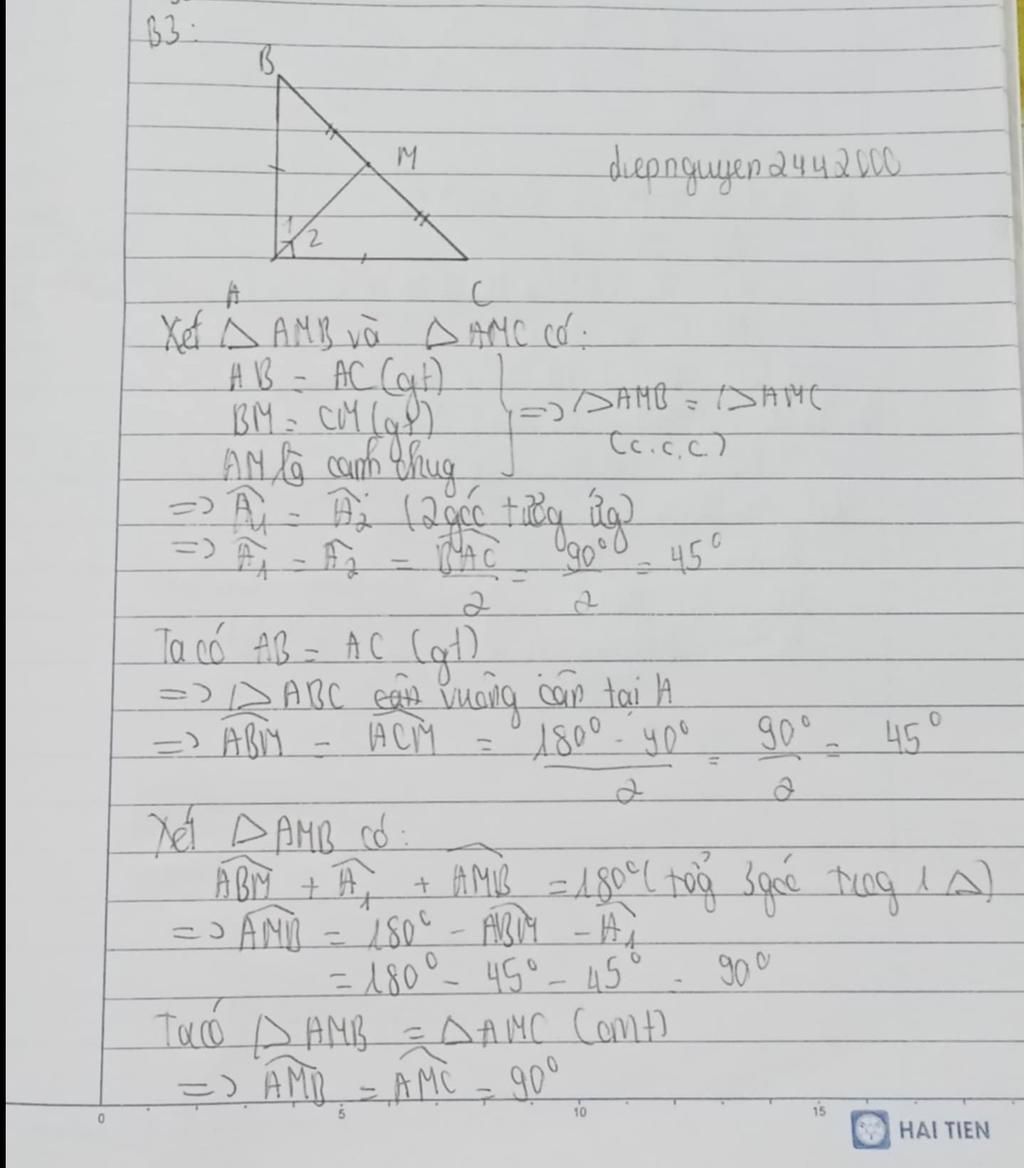 B3:
B
M
diepnguyen2442000
1
2
A
C
Xét △ AMB và △ AMC có:
AB = AC (gt)
BM = CM (gt)
AM là cạnh chug
=> △AMB = △AMC
(c.c.c)
=> Â₁ = Â₂ (2 góc tươg ứg)
=> Â₁ = Â₂ = BAC/2 = 90°/2 = 45°
Ta có AB = AC (gt)
=> △ ABC cân vuông cân tại A
=> ABM = ACM = 180° - 90°/2 = 90°/2 = 45°
Xét △AMB có:
ABM + Â₁ + AMB = 180° (tổg 3 góc trog 1 △)
=> AMB = 180° - ABM - Â₁
= 180° - 45° - 45° = 90°
Ta có △ AMB = △ AMC (cmt)
=> AMB = AMC = 90°
0 5 10 15
HAI TIEN